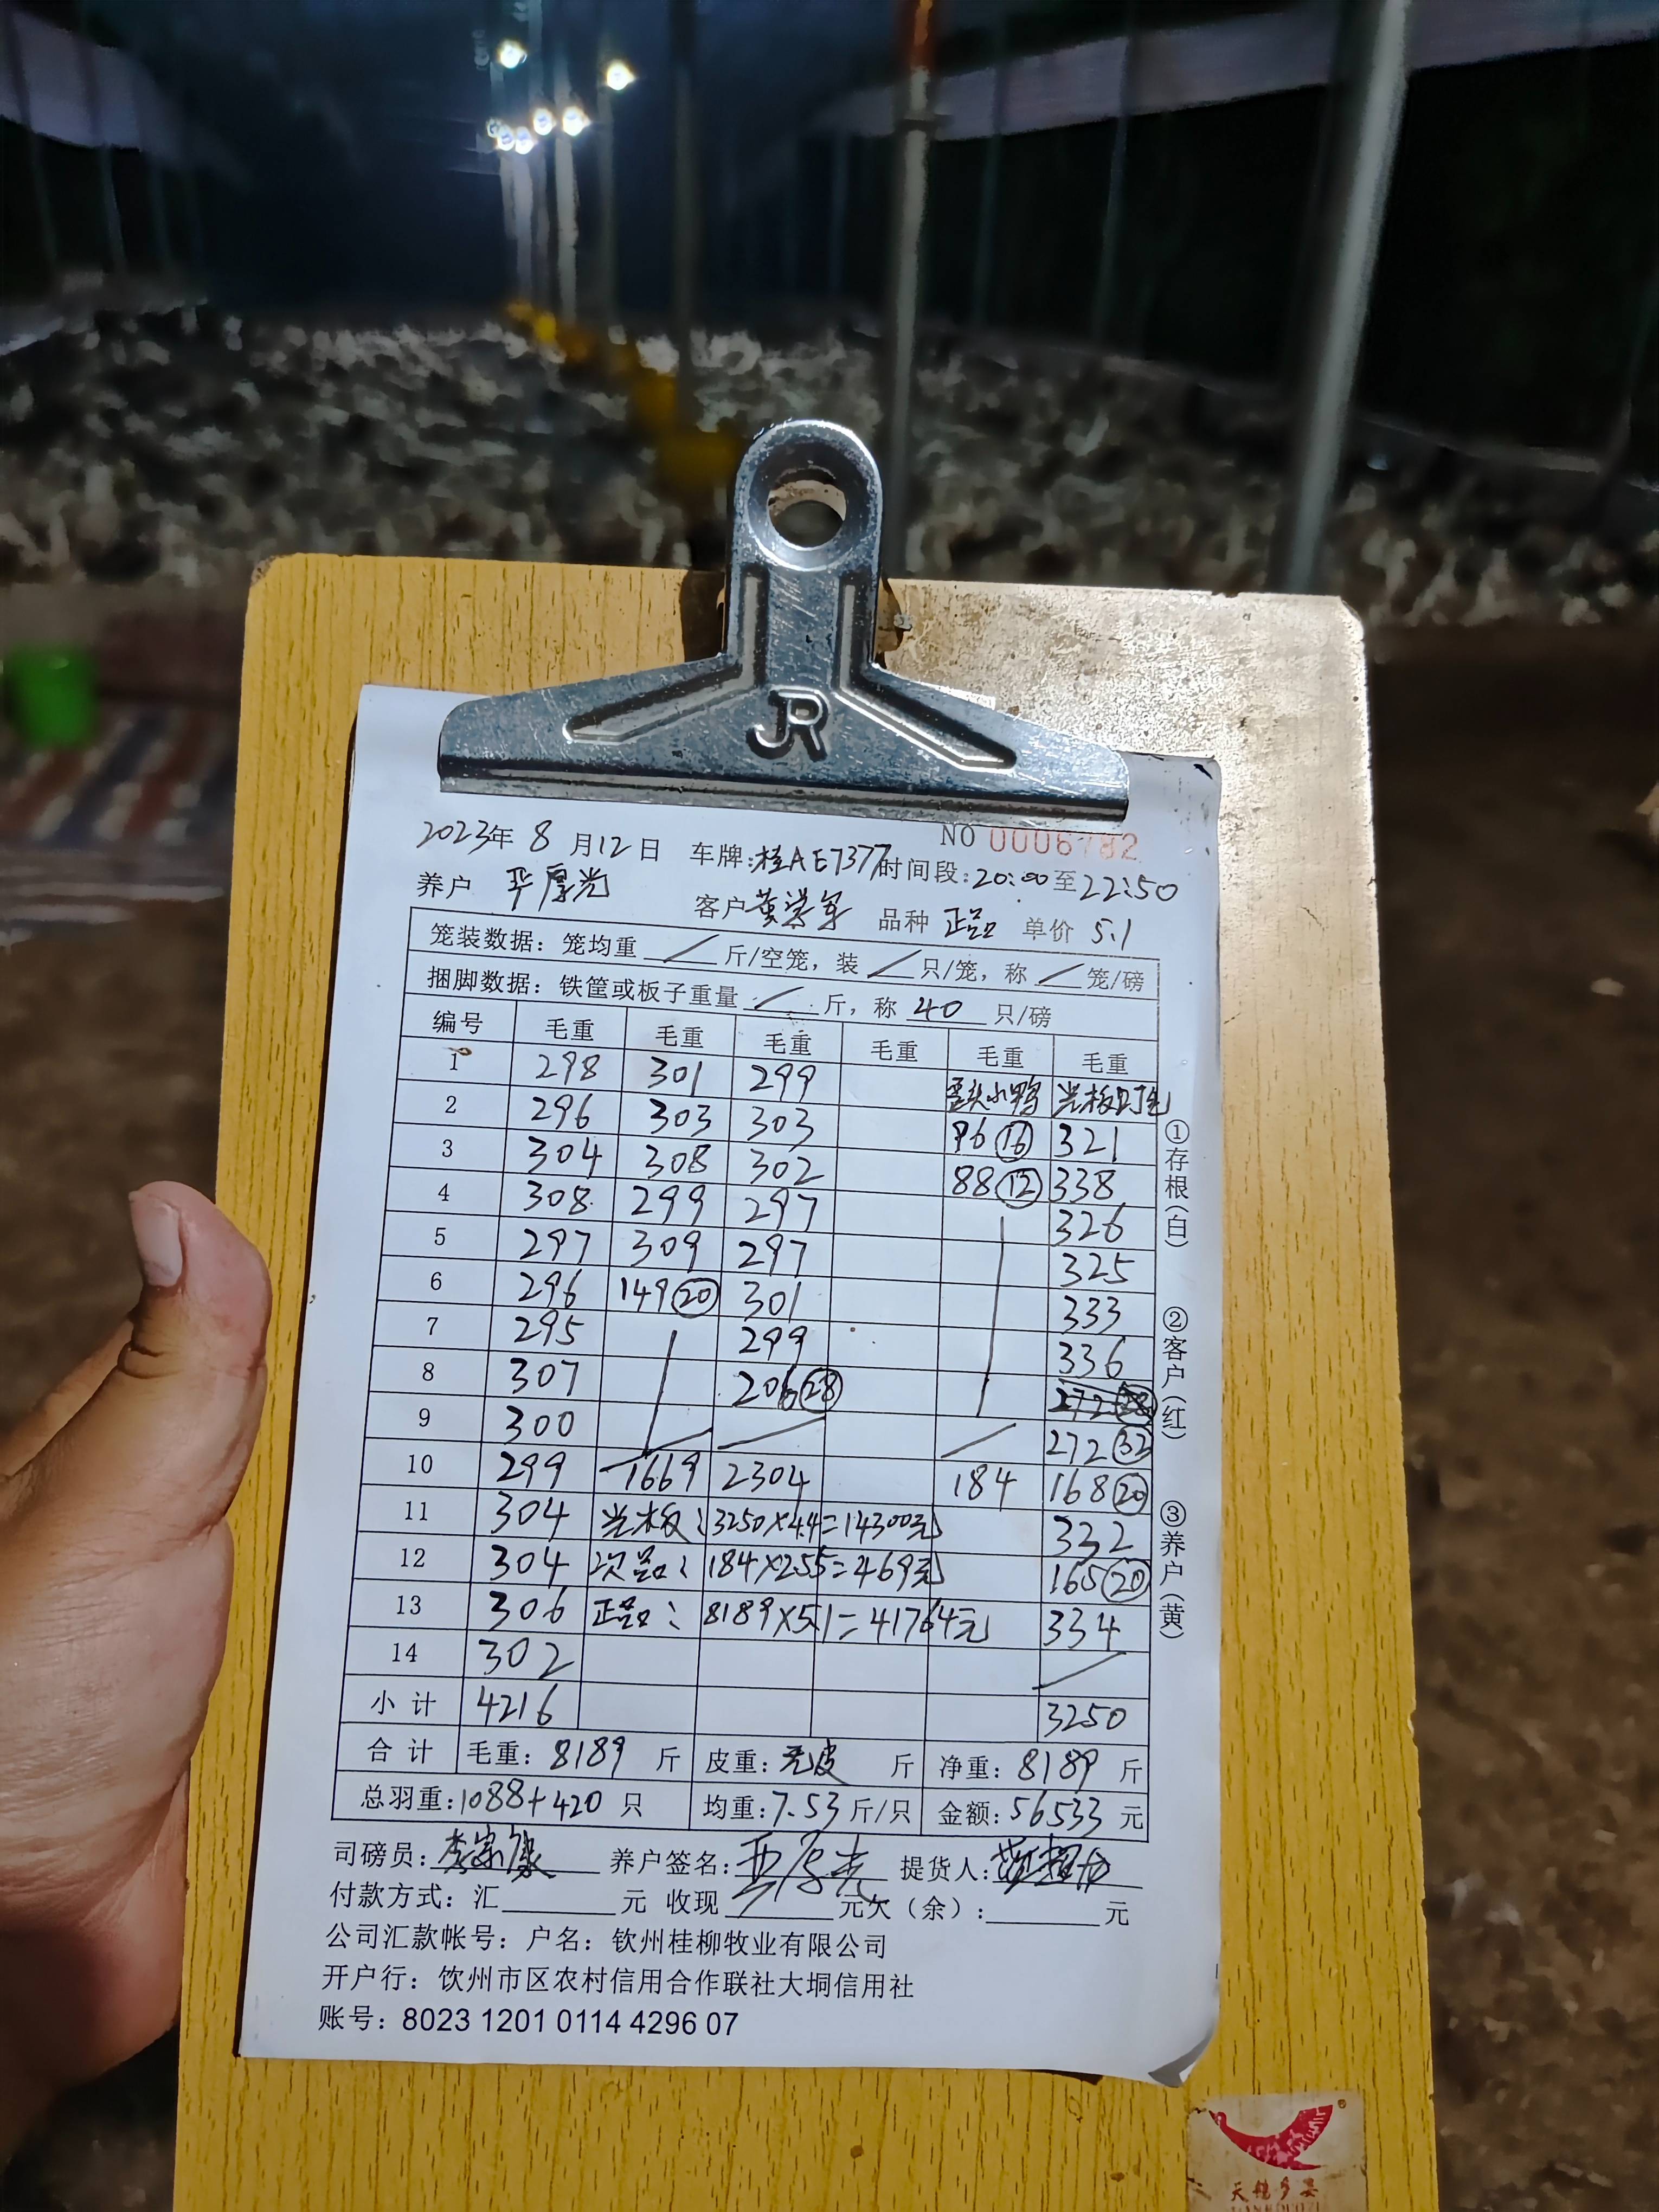 JR
NO 0006782
2023年 8 月12日 车牌:桂AE7377 时间段:20:00至22:50
养户 厚光 客户 黄 军 品种 正品 单价 5.1
笼装数据：笼均重 / 斤/空笼，装 / 只/笼，称 / 笼/磅
捆脚数据：铁筐或板子重量 / 斤，称 40 只/磅
编号 毛重 毛重 毛重 毛重 毛重 毛重
1 298 301 299 歪头小鸭 光板
2 296 303 303 96⑯ 321
3 304 308 302 88⑫ 338
4 308 299 297 326
5 297 309 297 325
6 296 149⑳ 301 333
7 295 299 336
8 307 206㉘
9 300 272㉜
10 299 1669 2304 184 168⑳
11 304 光板：3250×4.4=14300元 332
12 304 次品：184×2.55=469元 165⑳
13 306 正品：8189×5.1=41764元 334
14 302
小计 4216 3250
合计 毛重：8189 斤 皮重：无皮 斤 净重：8189 斤
总羽重:1088+420 只 均重:7.53斤/只 金额:56533 元
司磅员: 养户签名: 提货人:
付款方式：汇 元 收现 元欠（余）: 元
公司汇款帐号：户名：钦州桂柳牧业有限公司
开户行：饮州市区农村信用合作联社大垌信用社
账号：8023 1201 0114 4296 07
①存根(白)
②客户(红)
③养户(黄)